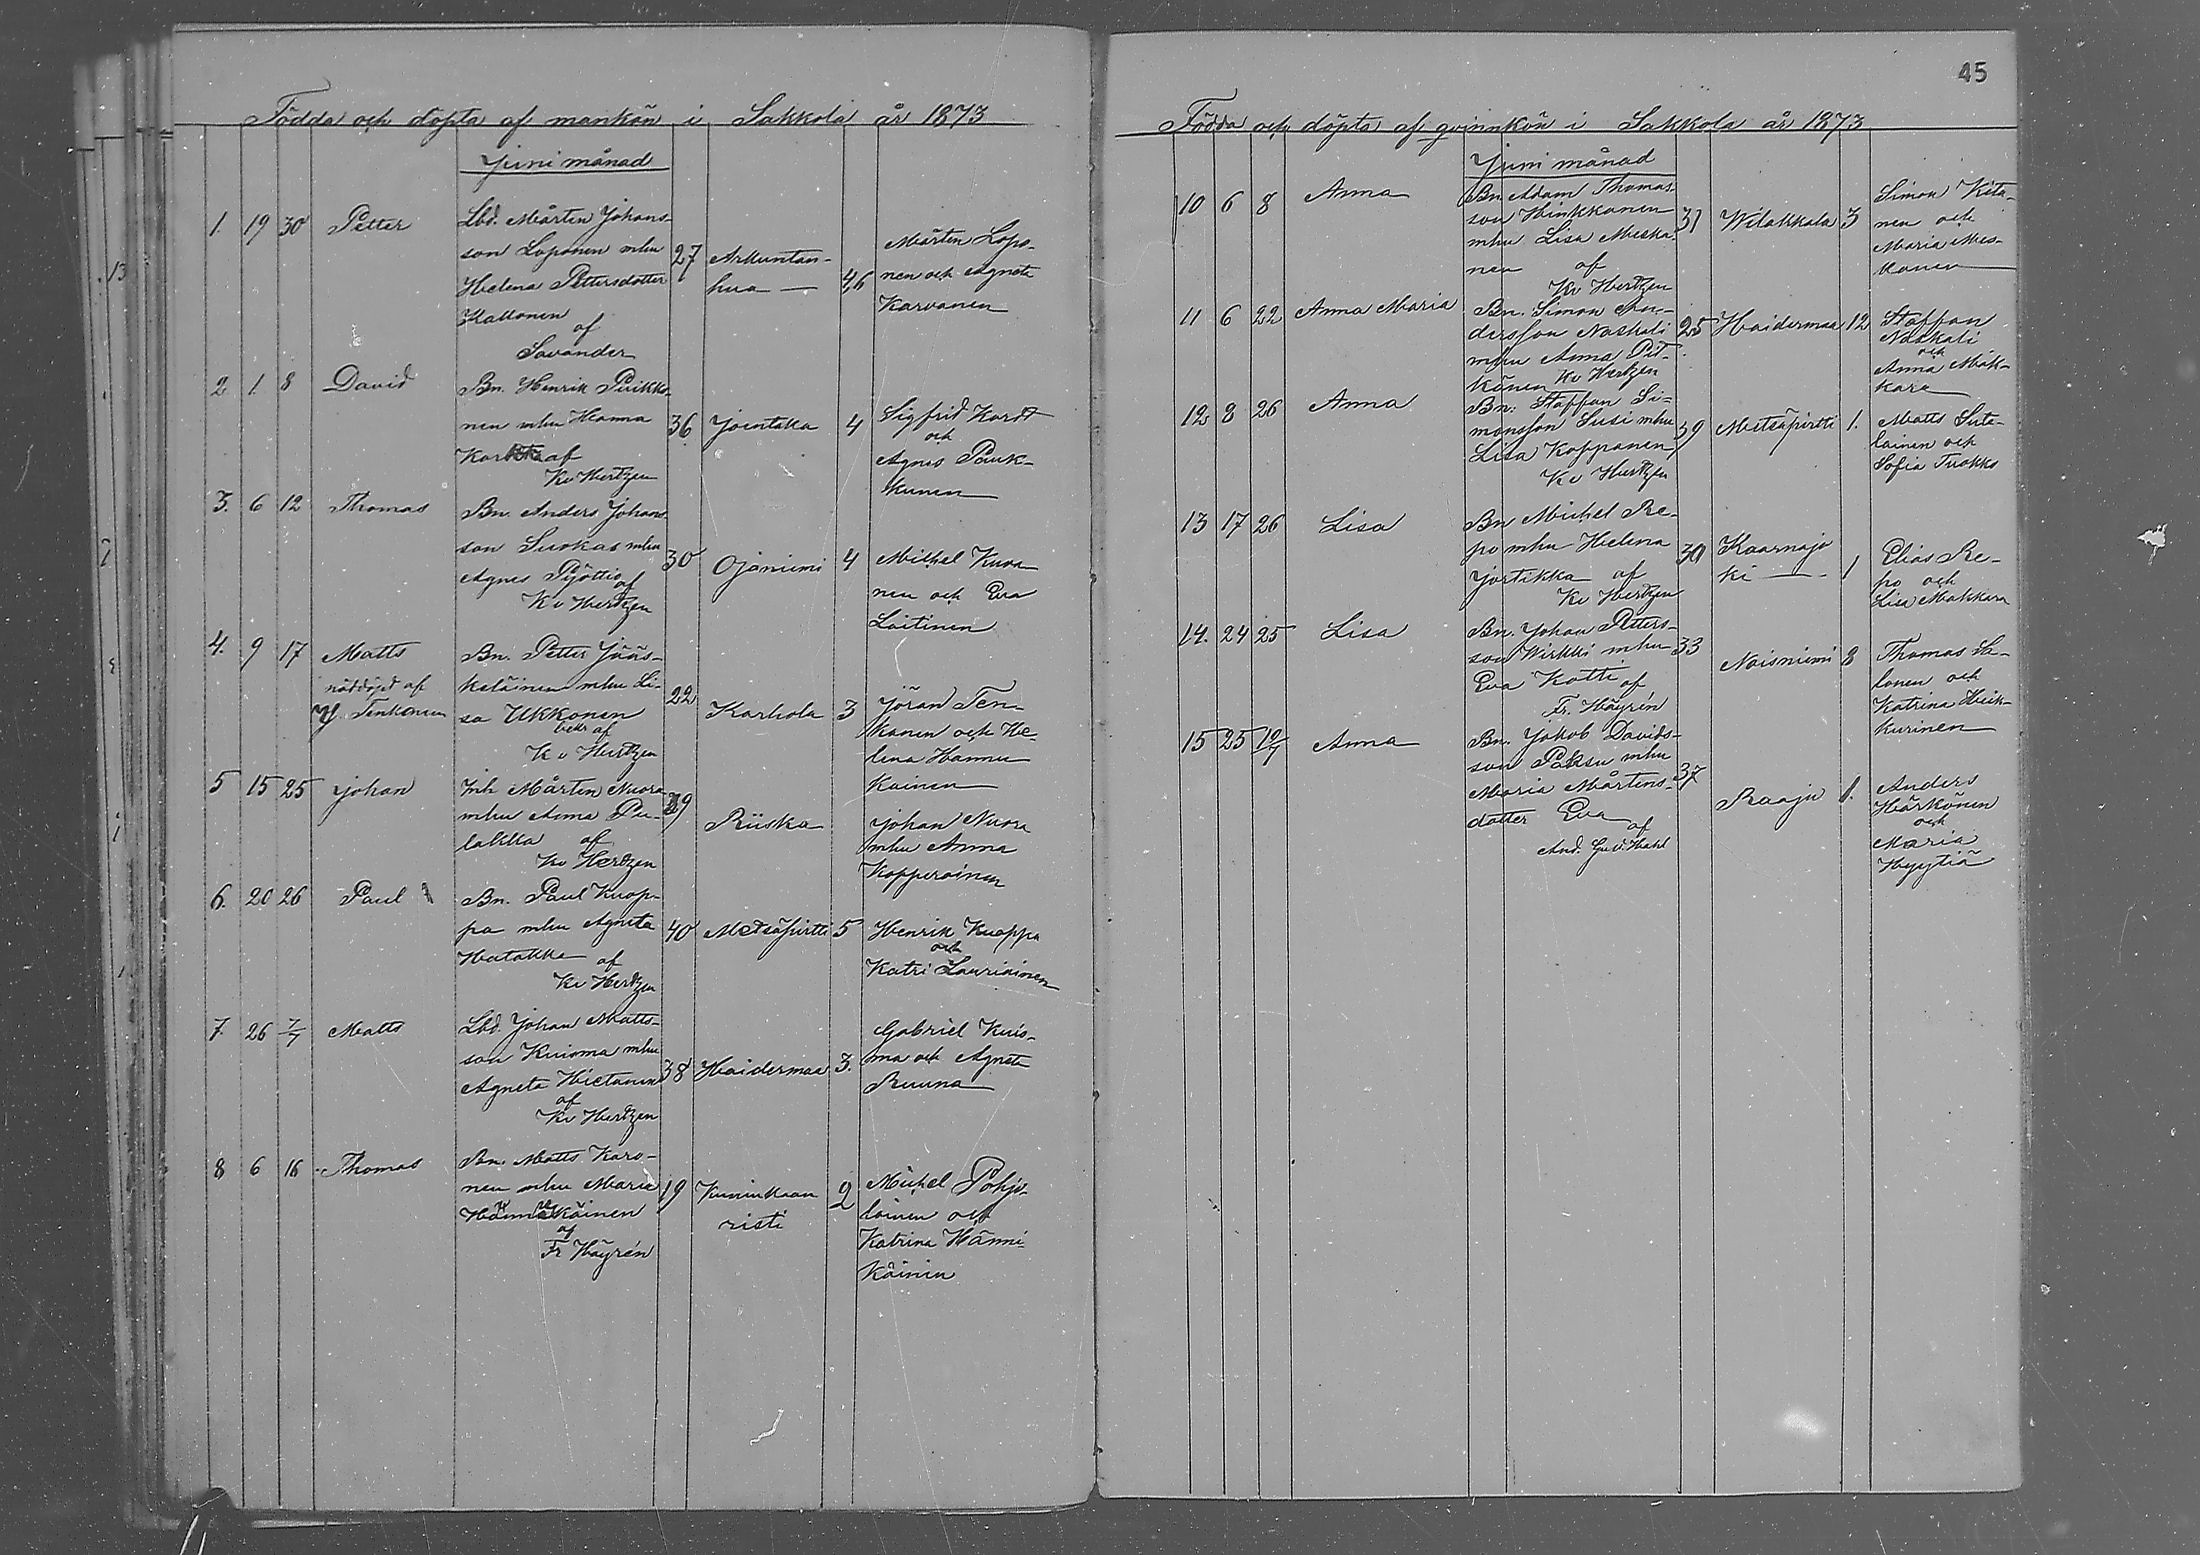 Födda och döpta af mankön i Sakkola år 1873
Juni månad
1. 19 30 Petter
Lbd. Mårten Johans-
son Loponen mhu
Helena Pettersdotter
Kallonen
af
Savander
27
Arkuntan-
hua
4,6
Mårten Lopo-
nen och Agneta
Karvanen
2 1. 8 David
Bn. Henrik Puikko-
nen mhu Hanna
af
Kv Hertzen
36 Joentaka 4
Sigfrid Kardt
och
Agnes Pauk-
kunen
3. 6 12 Thomas
Bn. Anders Johans
son Suokas mhu
Agnes Pyöttiö
af
Kv Hertzen
30 Ojaniemi 4
Michel Kuoa
nen och Eva
Laitinen
4. 9 17 Matts
nöddöpt af
Tenkanen
Bn. Petter Jääs-
keläinen mhu Li-
sa Ukkonen
bekr af
K v Hertzen
22 Karhola 3
Jöran Ten-
kanen och He-
lena Hannu
kainen
5 15 25 Johan
Inh Mårten Nuora
mhu Anna Pu-
lakka af
Kv Hertzen
39 Riiska
Johan Nuora
mhu Anna
Kopperoinen
6. 20 26 Paul
Bn. Paul Kuop-
pa mhu Agneta
Hatakka af
Kv Hertzen
40 Metsäpirtti 5
Henrik Kuoppa
och
Katri Lauriainen
7. 26 7/7 Matts
Lbd. Johan Matts-
son Kuisma mhu
Agneta Hietanen
af
Kv Hertzen
38 Haidermaa 3.
Gabriel Kuis-
ma och Agneta
Ruuna
8 6 16 Thomas
Bn. Matts Karo-
nen mhu Maria
Hännikäinen
af
Fr Häyrén
19
Kuninkaan
risti
2
Michel Pohjo-
lainen och
Katrina Hänni-
käinin
45
Födda och döpta af qvinnkön i Sakkola år 1873
Juni månad
10 6 8 Anna
Bn. Adam Thomas
son Hinkkanen
mhu Lisa Meska-
nen af
Kv Hertzen
31 Wilakkala 3
Simon Kita-
nen och
Maria Mes-
kanen
11 6 22 Anna Maria
Bn. Simon An-
dersson Naskali
mhu Anna Pit-
känen Kv Hertzen
25 Haidermaa 12
Staffan
Naskali
och
Anna Mäk-
kara
12 8 26 Anna
Bn. Staffan Si-
monsson Susi mhu
Lisa Koppanen
Kv Hertzen
39 Metsäpirtti 1.
Matts Suta-
lainen och
Sofia Tuokko
13 17 26 Lisa
Bn Michel Re-
po mhu Helena
Jortikka af
Kv Hertzen
30
Kaarnajo
ki
1
Elias Re-
po och
Lisa Makkara
14. 24 25 Lisa
Bn. Johan Peters-
son Wirkki mhu
Eva Katti af
Fr. Häyrén
33 Noisniemi 8
Thomas Sa-
lonen och
Katrina Heik-
kurinen
15 25 10/7 Anna
Bn. Jakob Davids-
son Paksu mhu
Maria Mårtens-
dotter Eva
af
37 Raaju 1.
Anders
Härkönen
och
Maria
Hyytiä